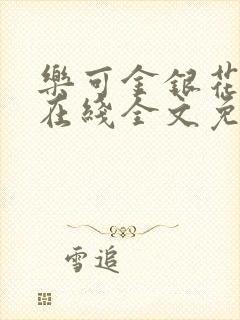 樂可金銀花
在綫全文免
雪追